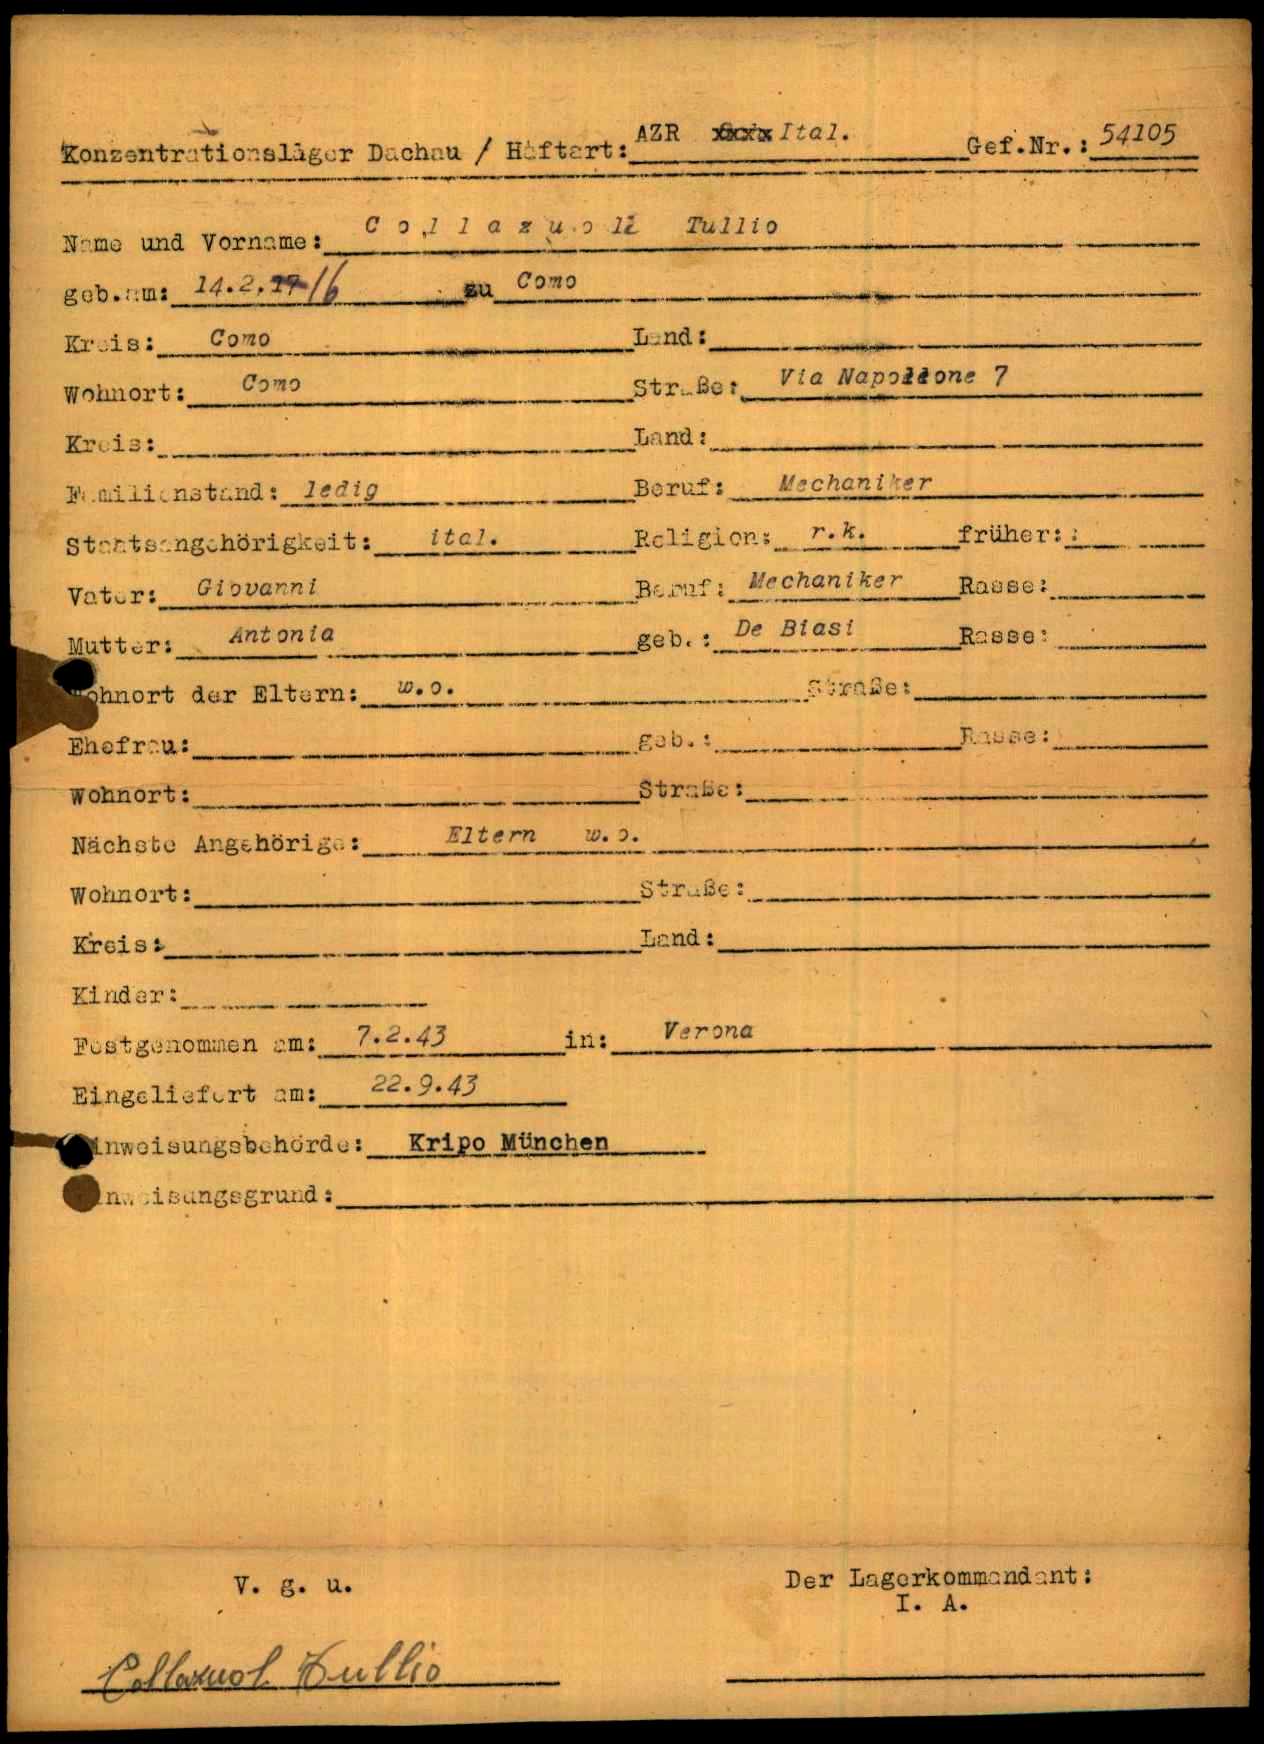 Konzentrationslager Dachau / Haftart: AZR Ital. Gef.Nr.: 54105
Name und Vorname: Collazuol Tullio
geb.am: 14.2.17 16 zu Como
Kreis: Como Land:
Wohnort: Como Straße: Via Napoleone 7
Kreis: Land:
Familienstand: ledig Beruf: Mechaniker
Staatsangehörigkeit: ital. Religion: r.k. früher::
Vater: Giovanni Beruf: Mechaniker Rasse:
Mutter: Antonia geb.: De Biasi Rasse:
Wohnort der Eltern: w.o. Straße:
Ehefrau: geb.: Rasse:
Wohnort: Straße:
Nächste Angehörige: Eltern w.o.
Wohnort: Straße:
Kreis: Land:
Kinder:
Festgenommen am: 7.2.43 in: Verona
Eingeliefert am: 22.9.43
Einweisungsbehörde: Kripo München
Einweisungsgrund:
V. g. u. Der Lagerkommandant:
I. A.
Collazuol Tullio